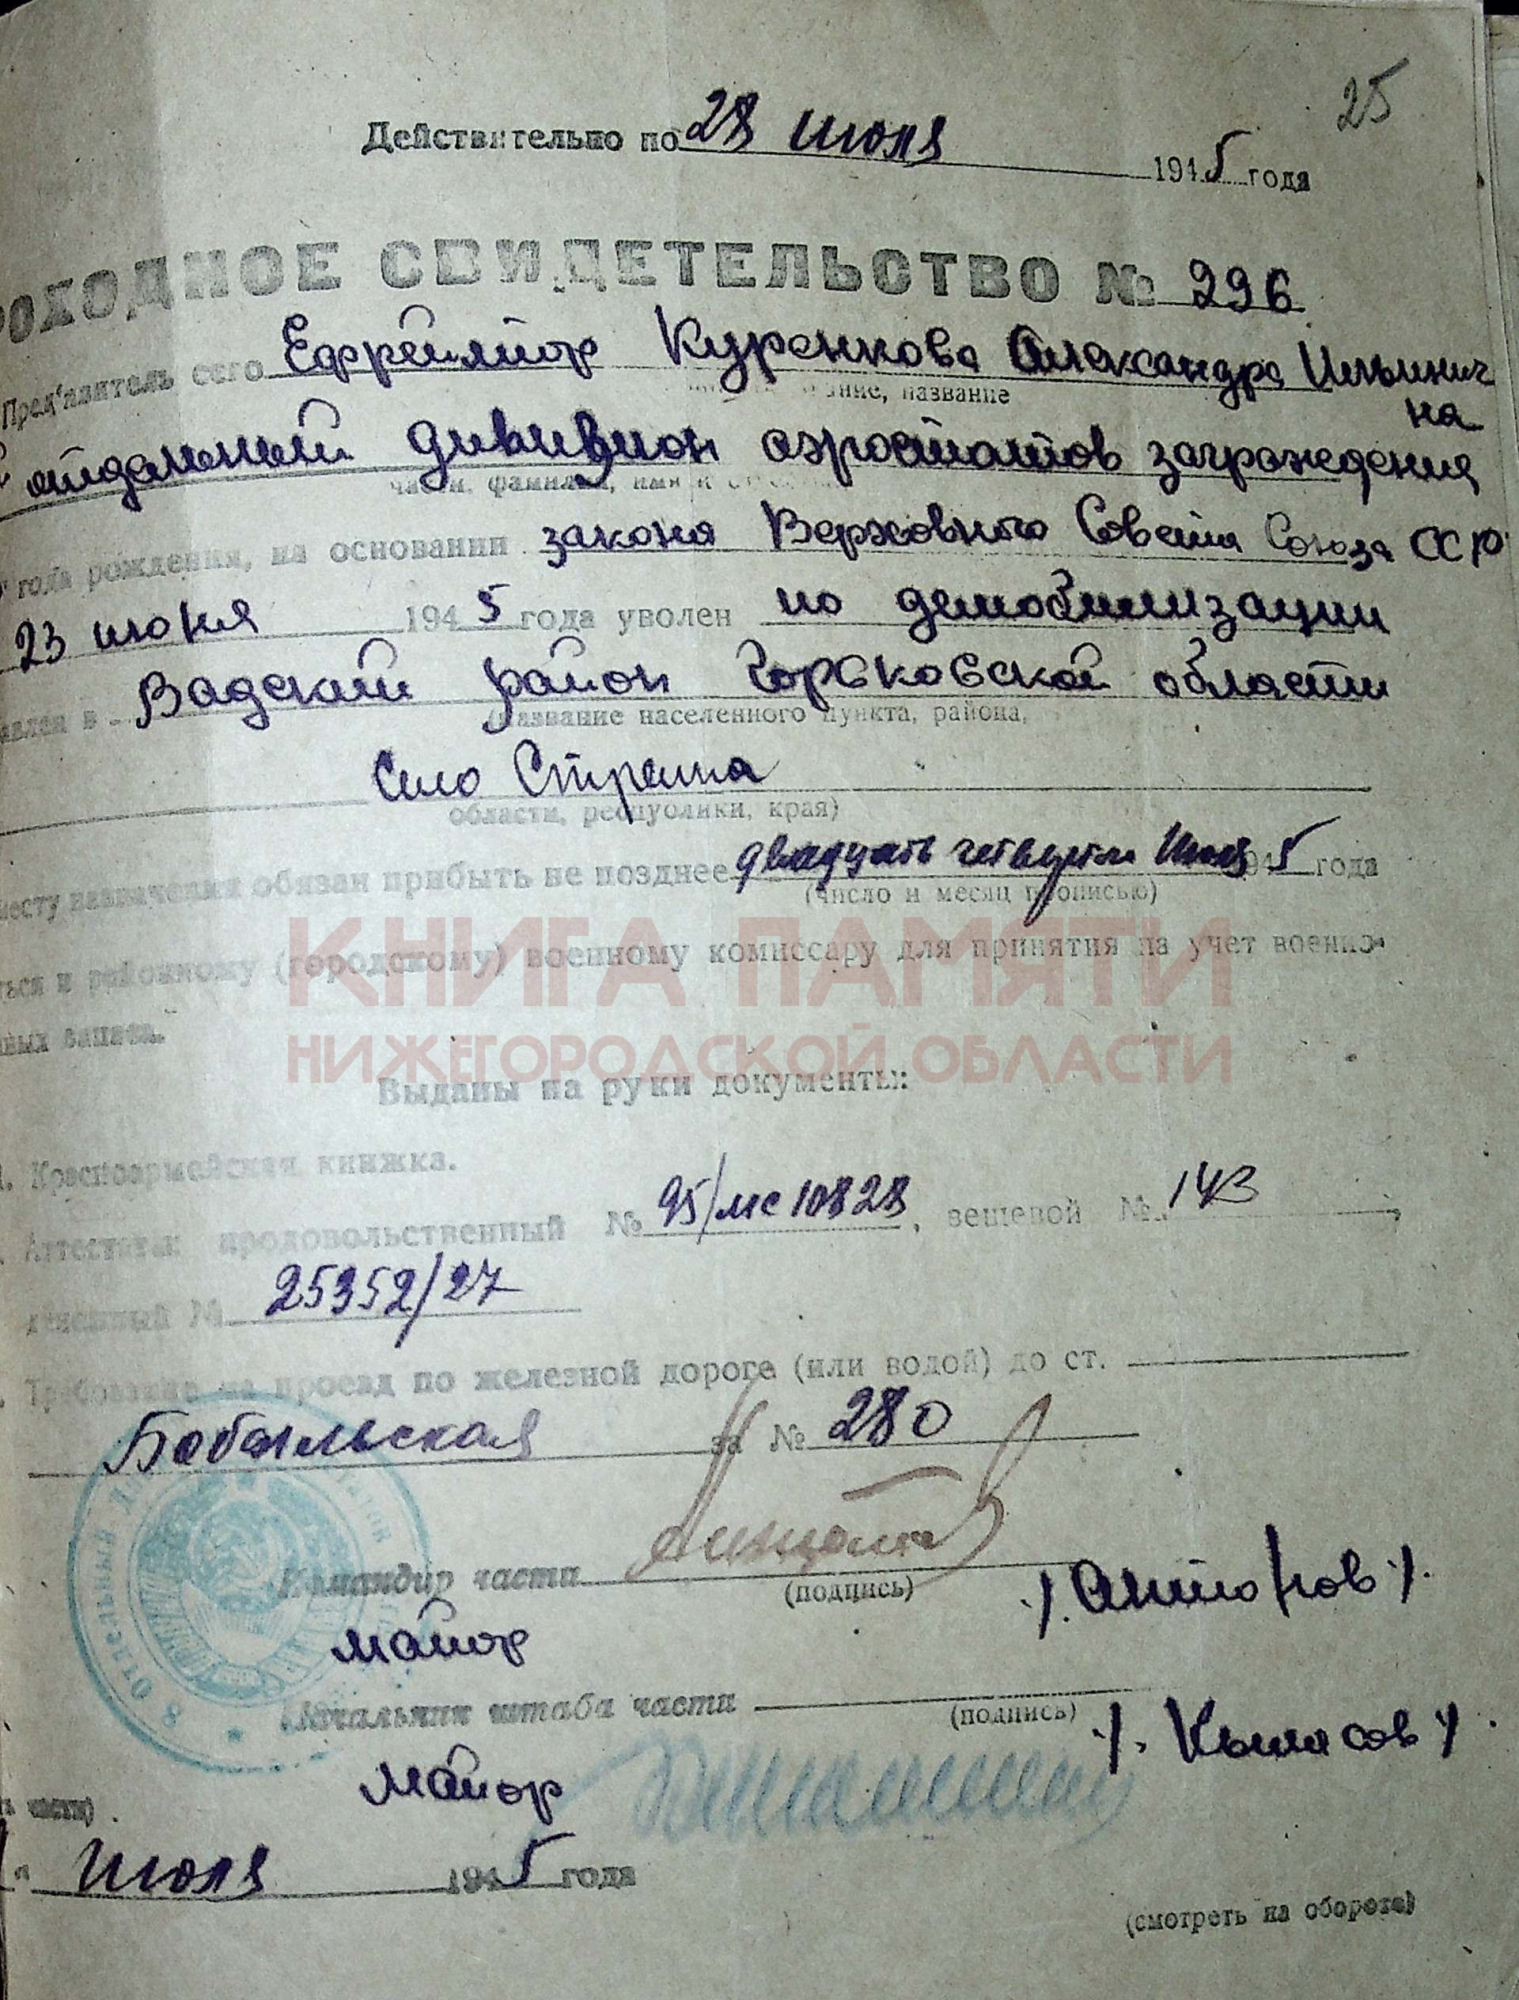 25
Действительно по 28 июля 1945 года
РОХОДНОЕ СВИДЕТЕЛЬСТВО № 296
Пред'явитель сего Ефрейтор Куренкова Александра Ильинич
на
звание, название
отдельный дивизион аэростатов заграждения
части, фамилия, имя и
года рождения, на основании закона Верховного Совета Союза ССР
23 июня 1945 года уволен по демобилизации
в Вадский район Горьковской области
(название населенного пункта, района,
Село Стрелка
области, республики, края)
месту назначения обязан прибыть не позднее двадцать четвертого Июля 1945 года
(число и месяц прописью)
ться к районному (городскому) военному комиссару для принятия на учет военно-
ных запаса.
КНИГА ПАМЯТИ
НИЖЕГОРОДСКОЙ ОБЛАСТИ
Выданы на руки документы:
1. Красноармейская книжка.
Аттестаты: продовольственный № 95/мс 10828, вещевой № 143;
денежный № 25352/27
Требование на проезд по железной дороге (или водой) до ст.
за № 280
8 ОТДЕЛЬНЫЙ
Командир части
(подпись)
/. Антонов /.
майор
Начальник штаба части
(подпись)
майор
части)
" июля 1945 года
(смотреть на обороте)